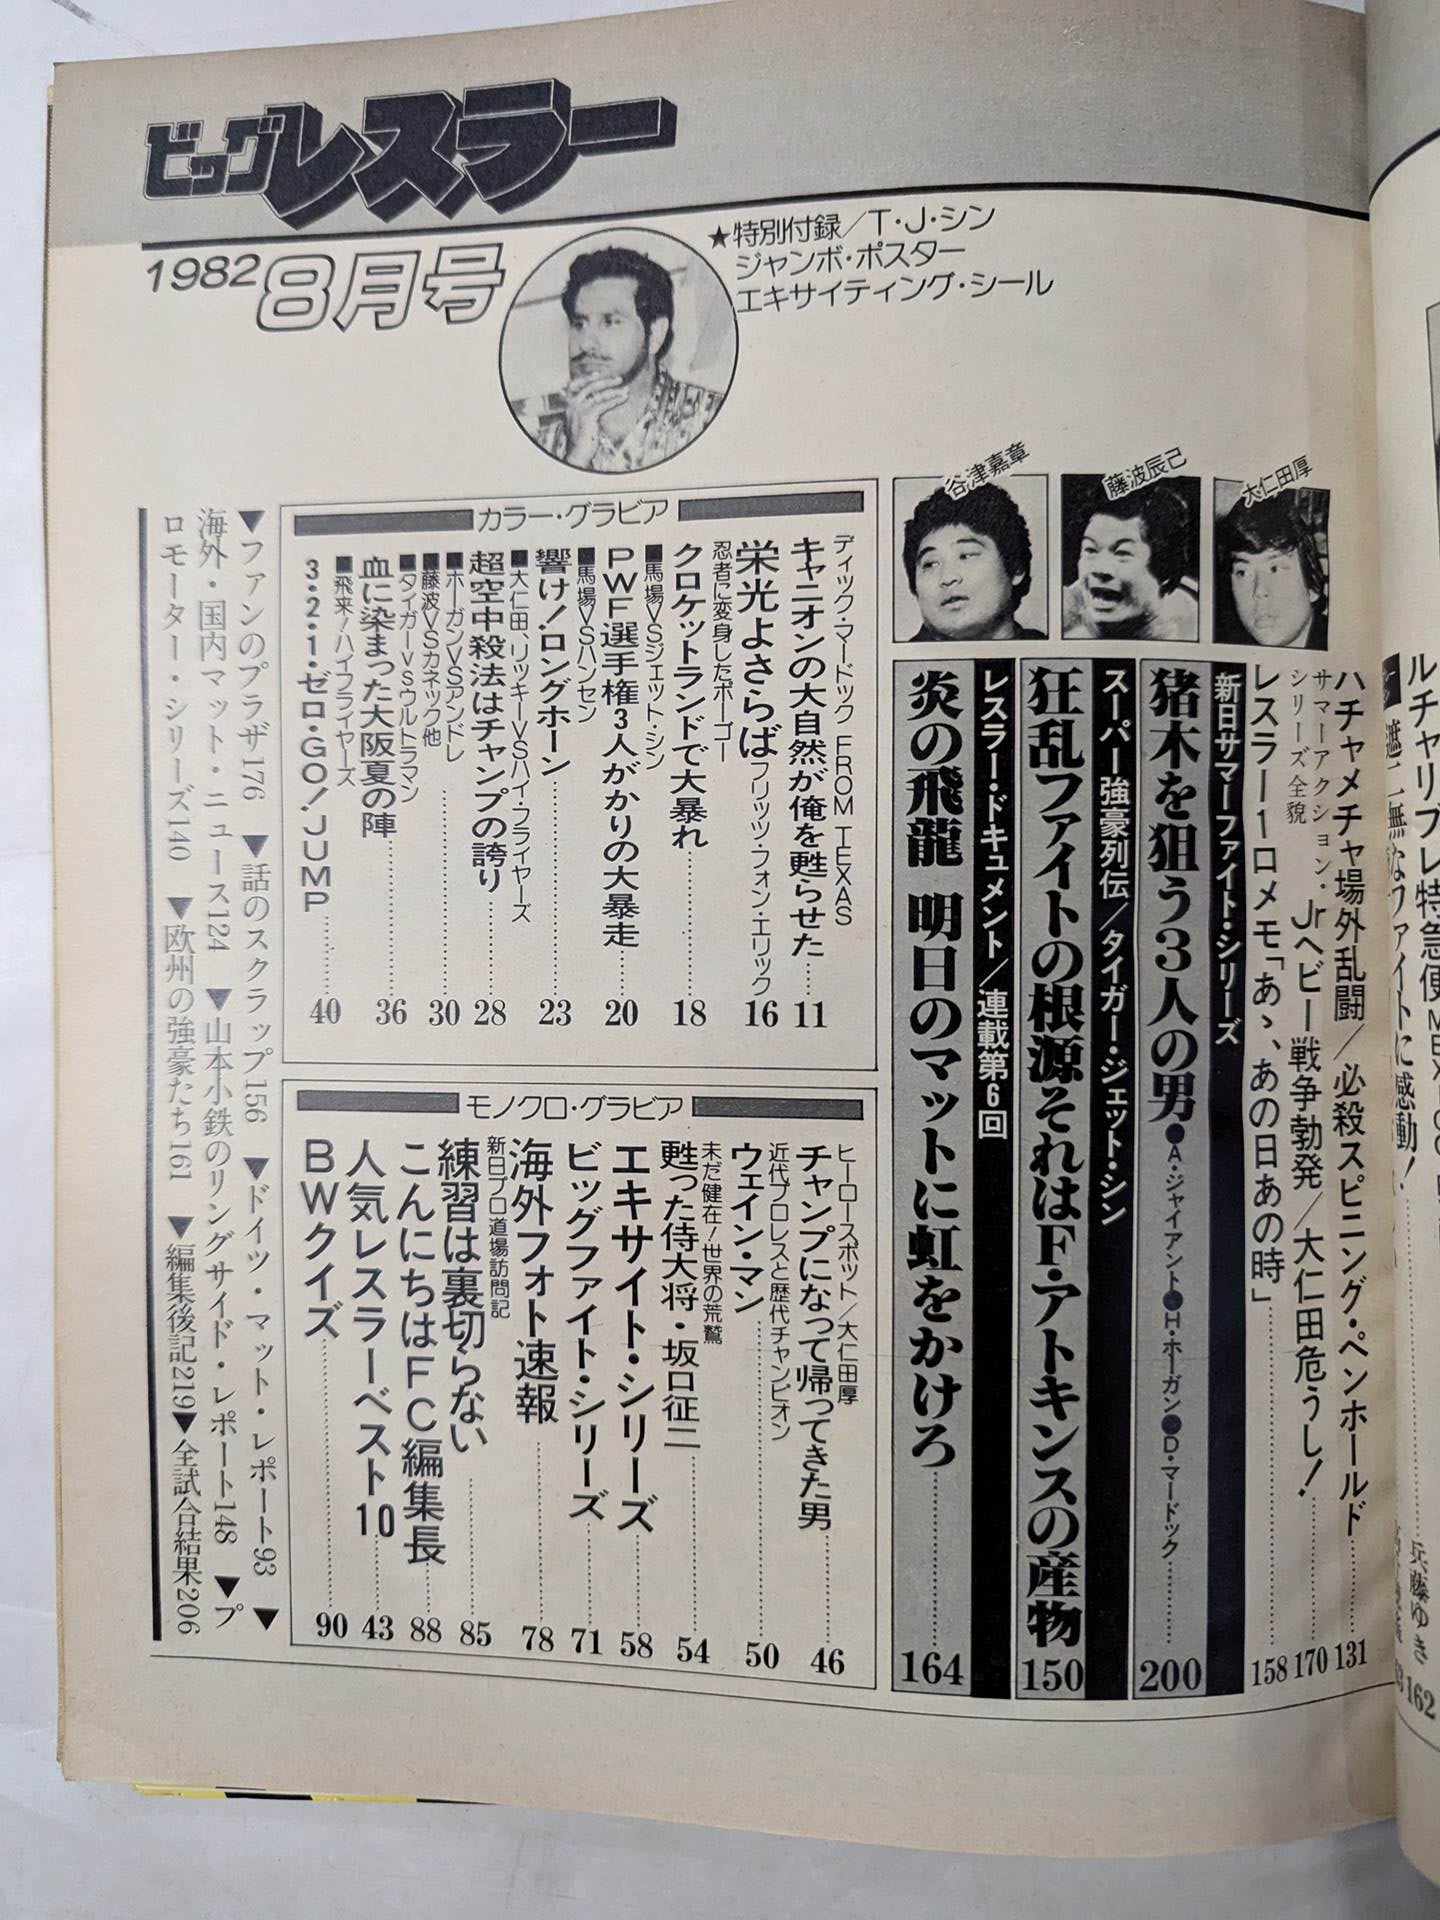 ビッグレスラー
1982 8月号
★特別付録/T・J・シン
ジャンボ・ポスター
エキサイティング・シール
大仁田厚
藤波辰己
谷津嘉章
ルチャリブレ特急便
兵藤ゆき
162
ハチャメチャ場外乱闘/必殺スピニング・ペンホールド……131
サマーアクション・
シリーズ全貌
Jrヘビー戦争勃発/大仁田危うし!……170
レスラー1口メモ「あゝ、あの日あの時」……158
新日サマーファイト・シリーズ
猪木を狙う3人の男●A・ジャイアント●H・ホーガン●D・マードック……200
スーパー強豪列伝/タイガー・ジェット・シン
狂乱ファイトの根源それはF・アトキンスの産物 150
レスラー・ドキュメント/連載第6回
炎の飛龍 明日のマットに虹をかけろ……164
カラー・グラビア
ディック・マードック FROM TEXAS
キャニオンの大自然が俺を甦らせた……11
栄光よさらば フリッツ・フォン・エリック 16
忍者に変身したポーゴー
クロケットランドで大暴れ……18
■馬場VSジェット・シン
PWF選手権3人がかりの大暴走……20
■馬場VSハンセン
響け!ロングホーン……23
■大仁田、リッキーVSハイ・フライヤーズ
超空中殺法はチャンプの誇り……28
■ホーガンVSアンドレ
■藤波VSカネック他……30
■タイガーVSウルトラマン
血に染まった大阪夏の陣……36
■飛来!ハイフライヤーズ
3・2・1・ゼロ・GO!JUMP……40
モノクロ・グラビア
ヒーロースポット/大仁田厚
チャンプになって帰ってきた男……46
近代プロレスと歴代チャンピオン
ウェイン・マン……50
未だ健在!世界の荒鷲
甦った侍大将・坂口征二……54
エキサイト・シリーズ……58
ビッグファイト・シリーズ……71
海外フォト速報……78
新日プロ道場訪問記
練習は裏切らない……85
こんにちはFC編集長……88
人気レスラーベスト10……43
BWクイズ……90
▼ファンのプラザ176 ▼話のスクラップ156 ▼ドイツ・マット・レポート93 ▼
海外・国内マット・ニュース124 ▼山本小鉄のリングサイド・レポート148 ▼プ
ロモーター・シリーズ140 ▼欧州の強豪たち161 ▼編集後記219▼全試合結果206